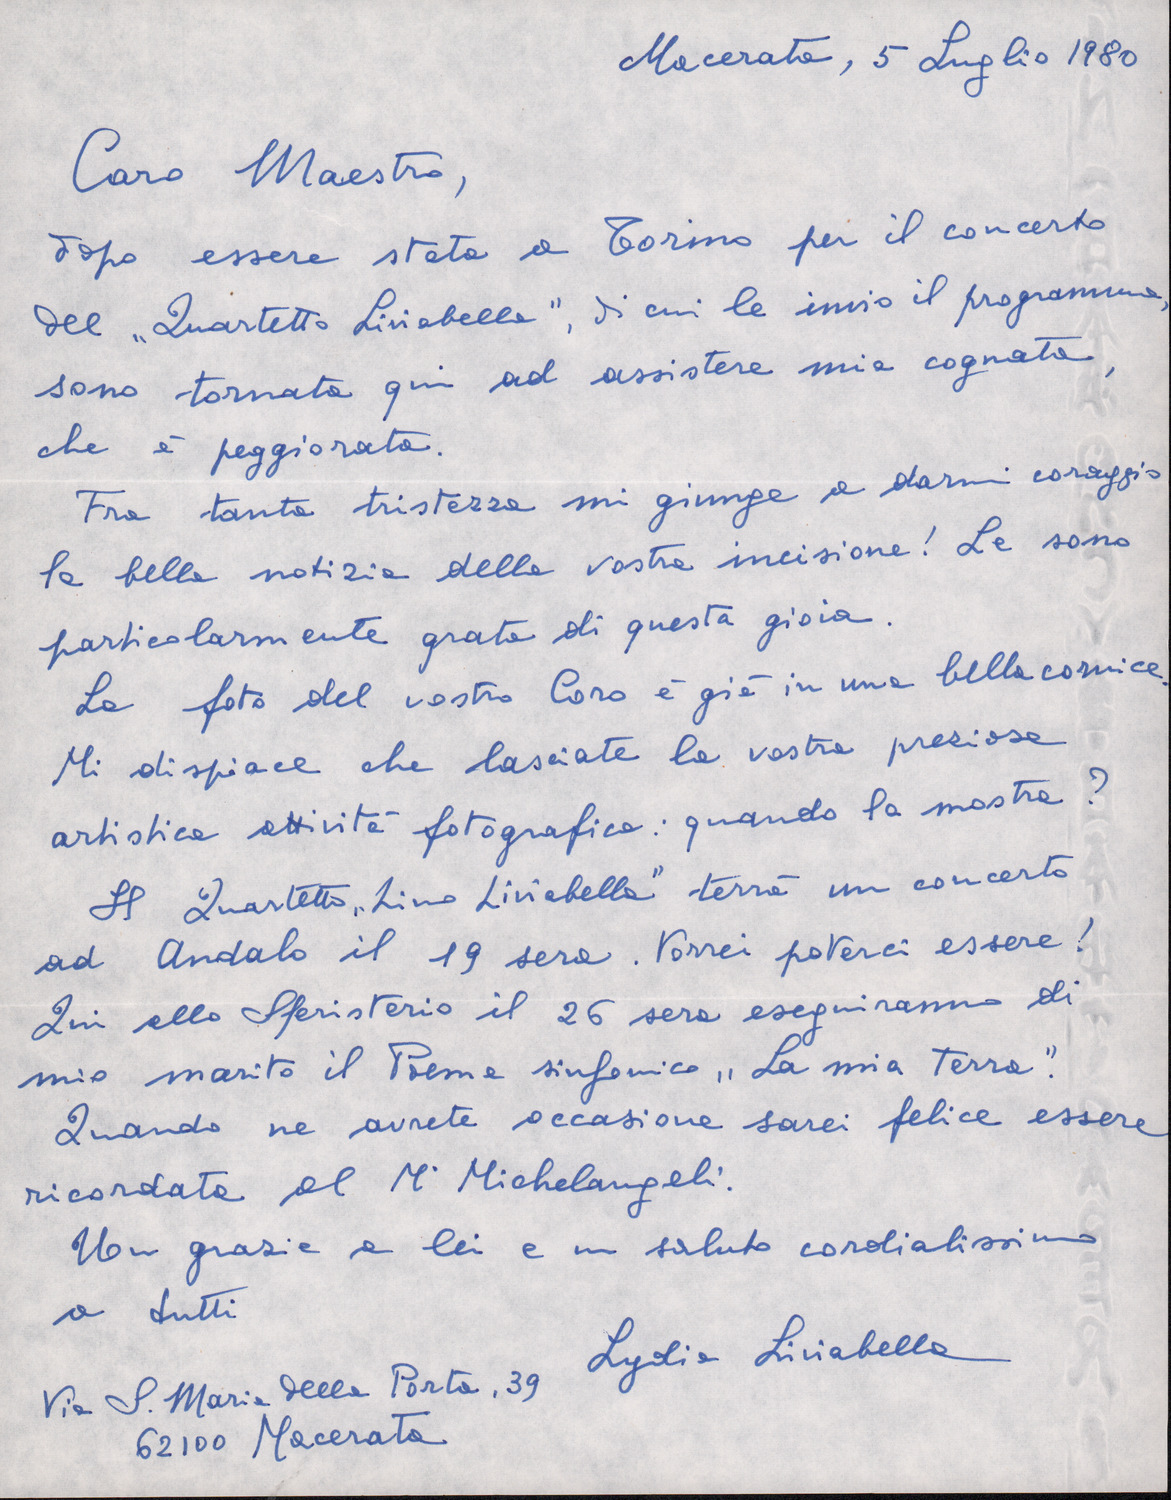 Macerata, 5 Luglio 1980
Caro Maestro,
dopo essere stata a Torino per il concerto
del „Quartetto Liviabella", di cui le invio il programma,
sono tornata qui ad assistere mia cognata,
che è peggiorata.
Fra tanta tristezza mi giunge a darmi coraggio
la bella notizia della vostra incisione! Le sono
particolarmente grata di questa gioia.
La foto del vostro Coro è già in una bella cornice.
Mi dispiace che lasciate la vostra preziosa
artistica attività fotografica: quando la mostra?
Il Quartetto „Lino Liviabella" terrà un concerto
ad Andalo il 19 sera. Vorrei poterci essere!
Qui allo Sferisterio il 26 sera eseguiranno di
mio marito il Poema sinfonico „La mia Terra".
Quando ne avrete occasione sarei felice essere
ricordata al M° Michelangeli.
Un grazie a lei e un saluto cordialissimo
a tutti
Lydia Liviabella
Via S. Maria della Porta, 39
62100 Macerata